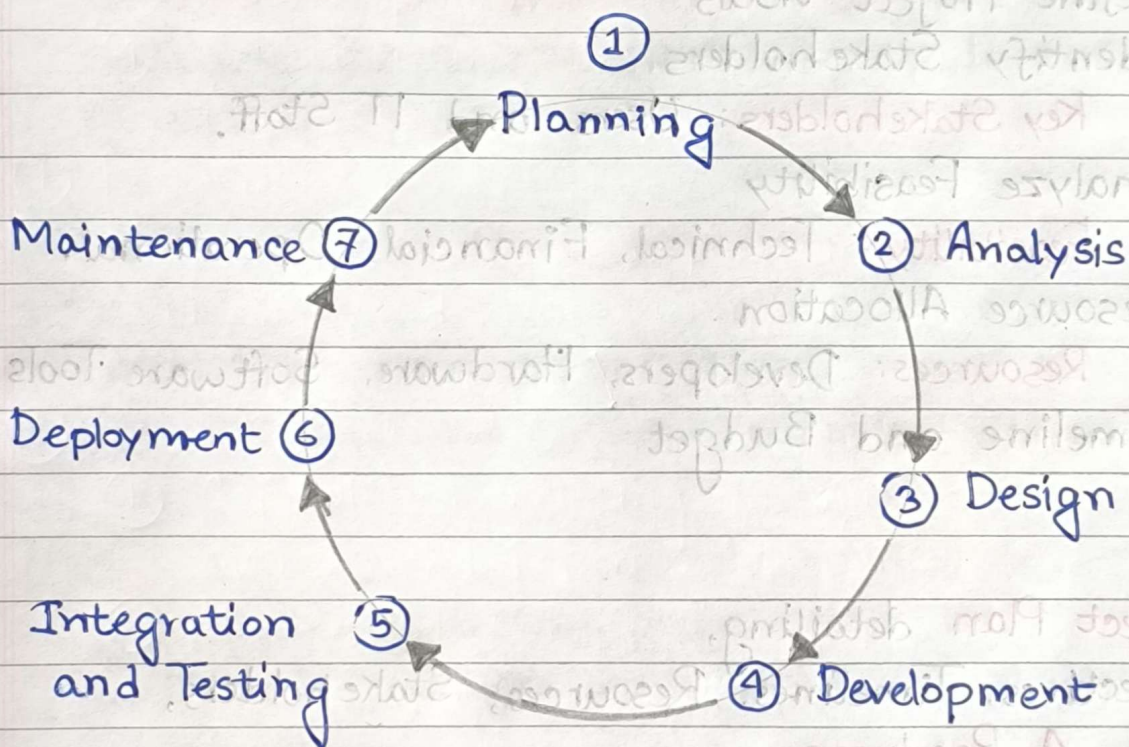 1
Planning
2 Analysis
3 Design
4 Development
5
Integration
and Testing
6
Deployment
7
Maintenance